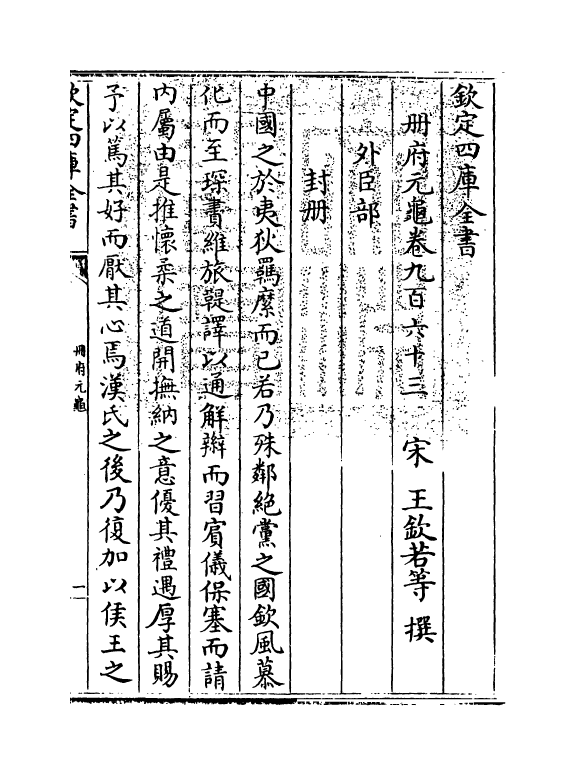 欽定四庫全書
冊府元龜卷九百六十三　宋　王欽若等　撰
外臣部
封册
中國之於夷狄羈縻而已若乃殊鄰絶黨之國欽風慕
化而至琛賮維旅鞮譯以通解辮而習賓儀保塞而請
内屬由是推懷柔之道開撫納之意優其禮遇厚其賜
予以篤其好而厭其心焉漢氏之後乃復加以侯王之
欽定四庫全書
冊府元龜
一